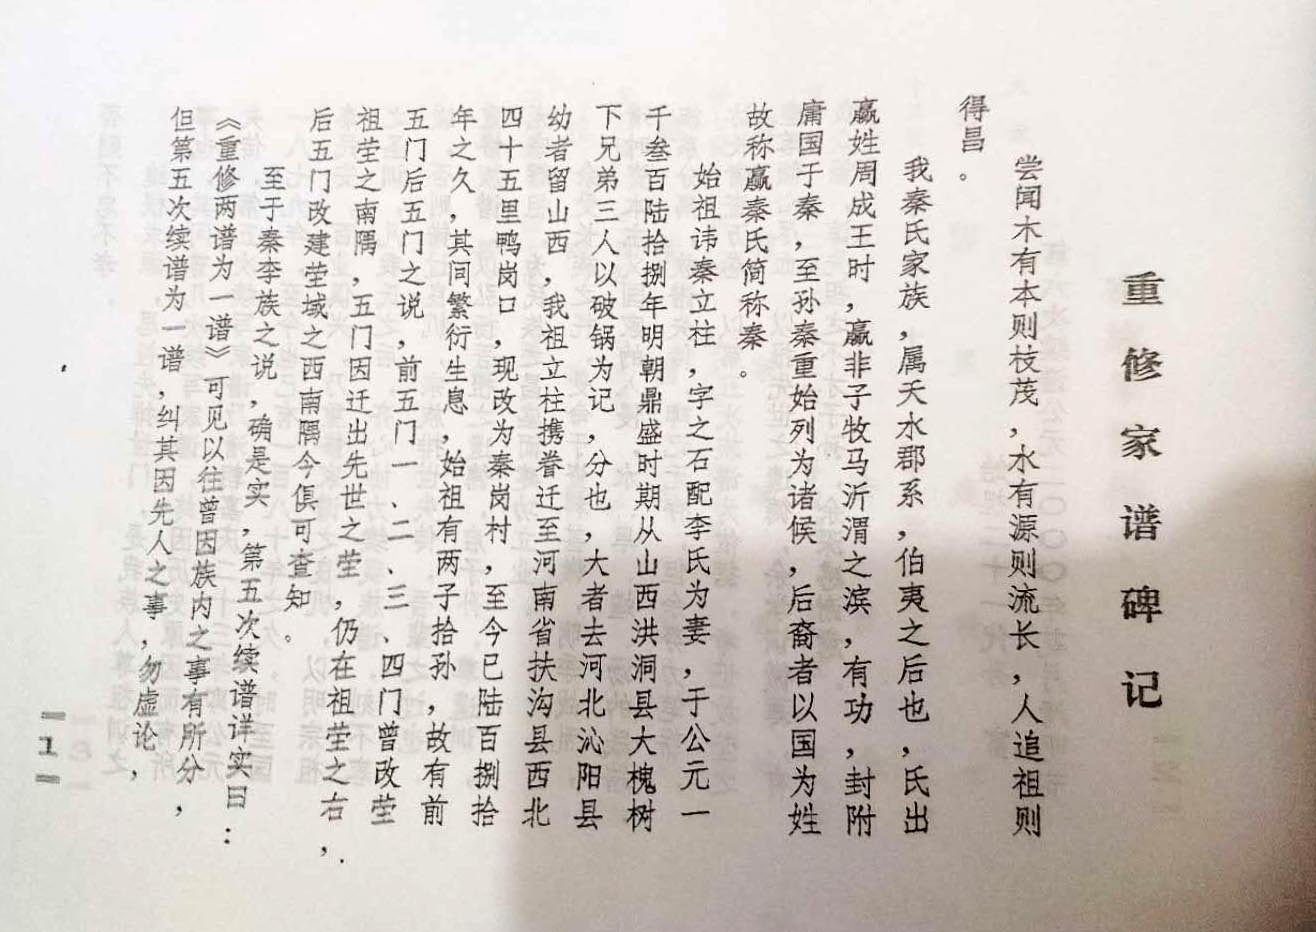 重修家谱碑记
尝闻木有本则枝茂，水有源则流长，人追祖则
得昌。
我秦氏家族，属天水郡系，伯夷之后也，氏出
嬴姓周成王时，嬴非子牧马沂渭之滨，有功，封附
庸国于秦，至孙秦重始列为诸候，后裔者以国为姓
故称嬴秦氏简称秦。
始祖讳秦立柱，字之石配李氏为妻，于公元一
千叁百陆拾捌年明朝鼎盛时期从山西洪洞县大槐树
下兄弟三人以破锅为记，分也，大者去河北沁阳县
幼者留山西，我祖立柱携眷迁至河南省扶沟县西北
四十五里鸭岗口，现改为秦岗村，至今已陆百捌拾
年之久，其间繁衍生息，始祖有两子拾孙，故有前
五门后五门之说，前五门一、二、三、四门曾改茔
祖茔之南隅，五门因迁出先世之茔，仍在祖茔之右，
后五门改建茔域之西南隅今俱可查知。
至于秦李族之说，确是实，第五次续谱详实曰：
《重修两谱为一谱》可见以往曾因族内之事有所分，
但第五次续谱为一谱，纠其因先人之事，勿虚论，
=1=